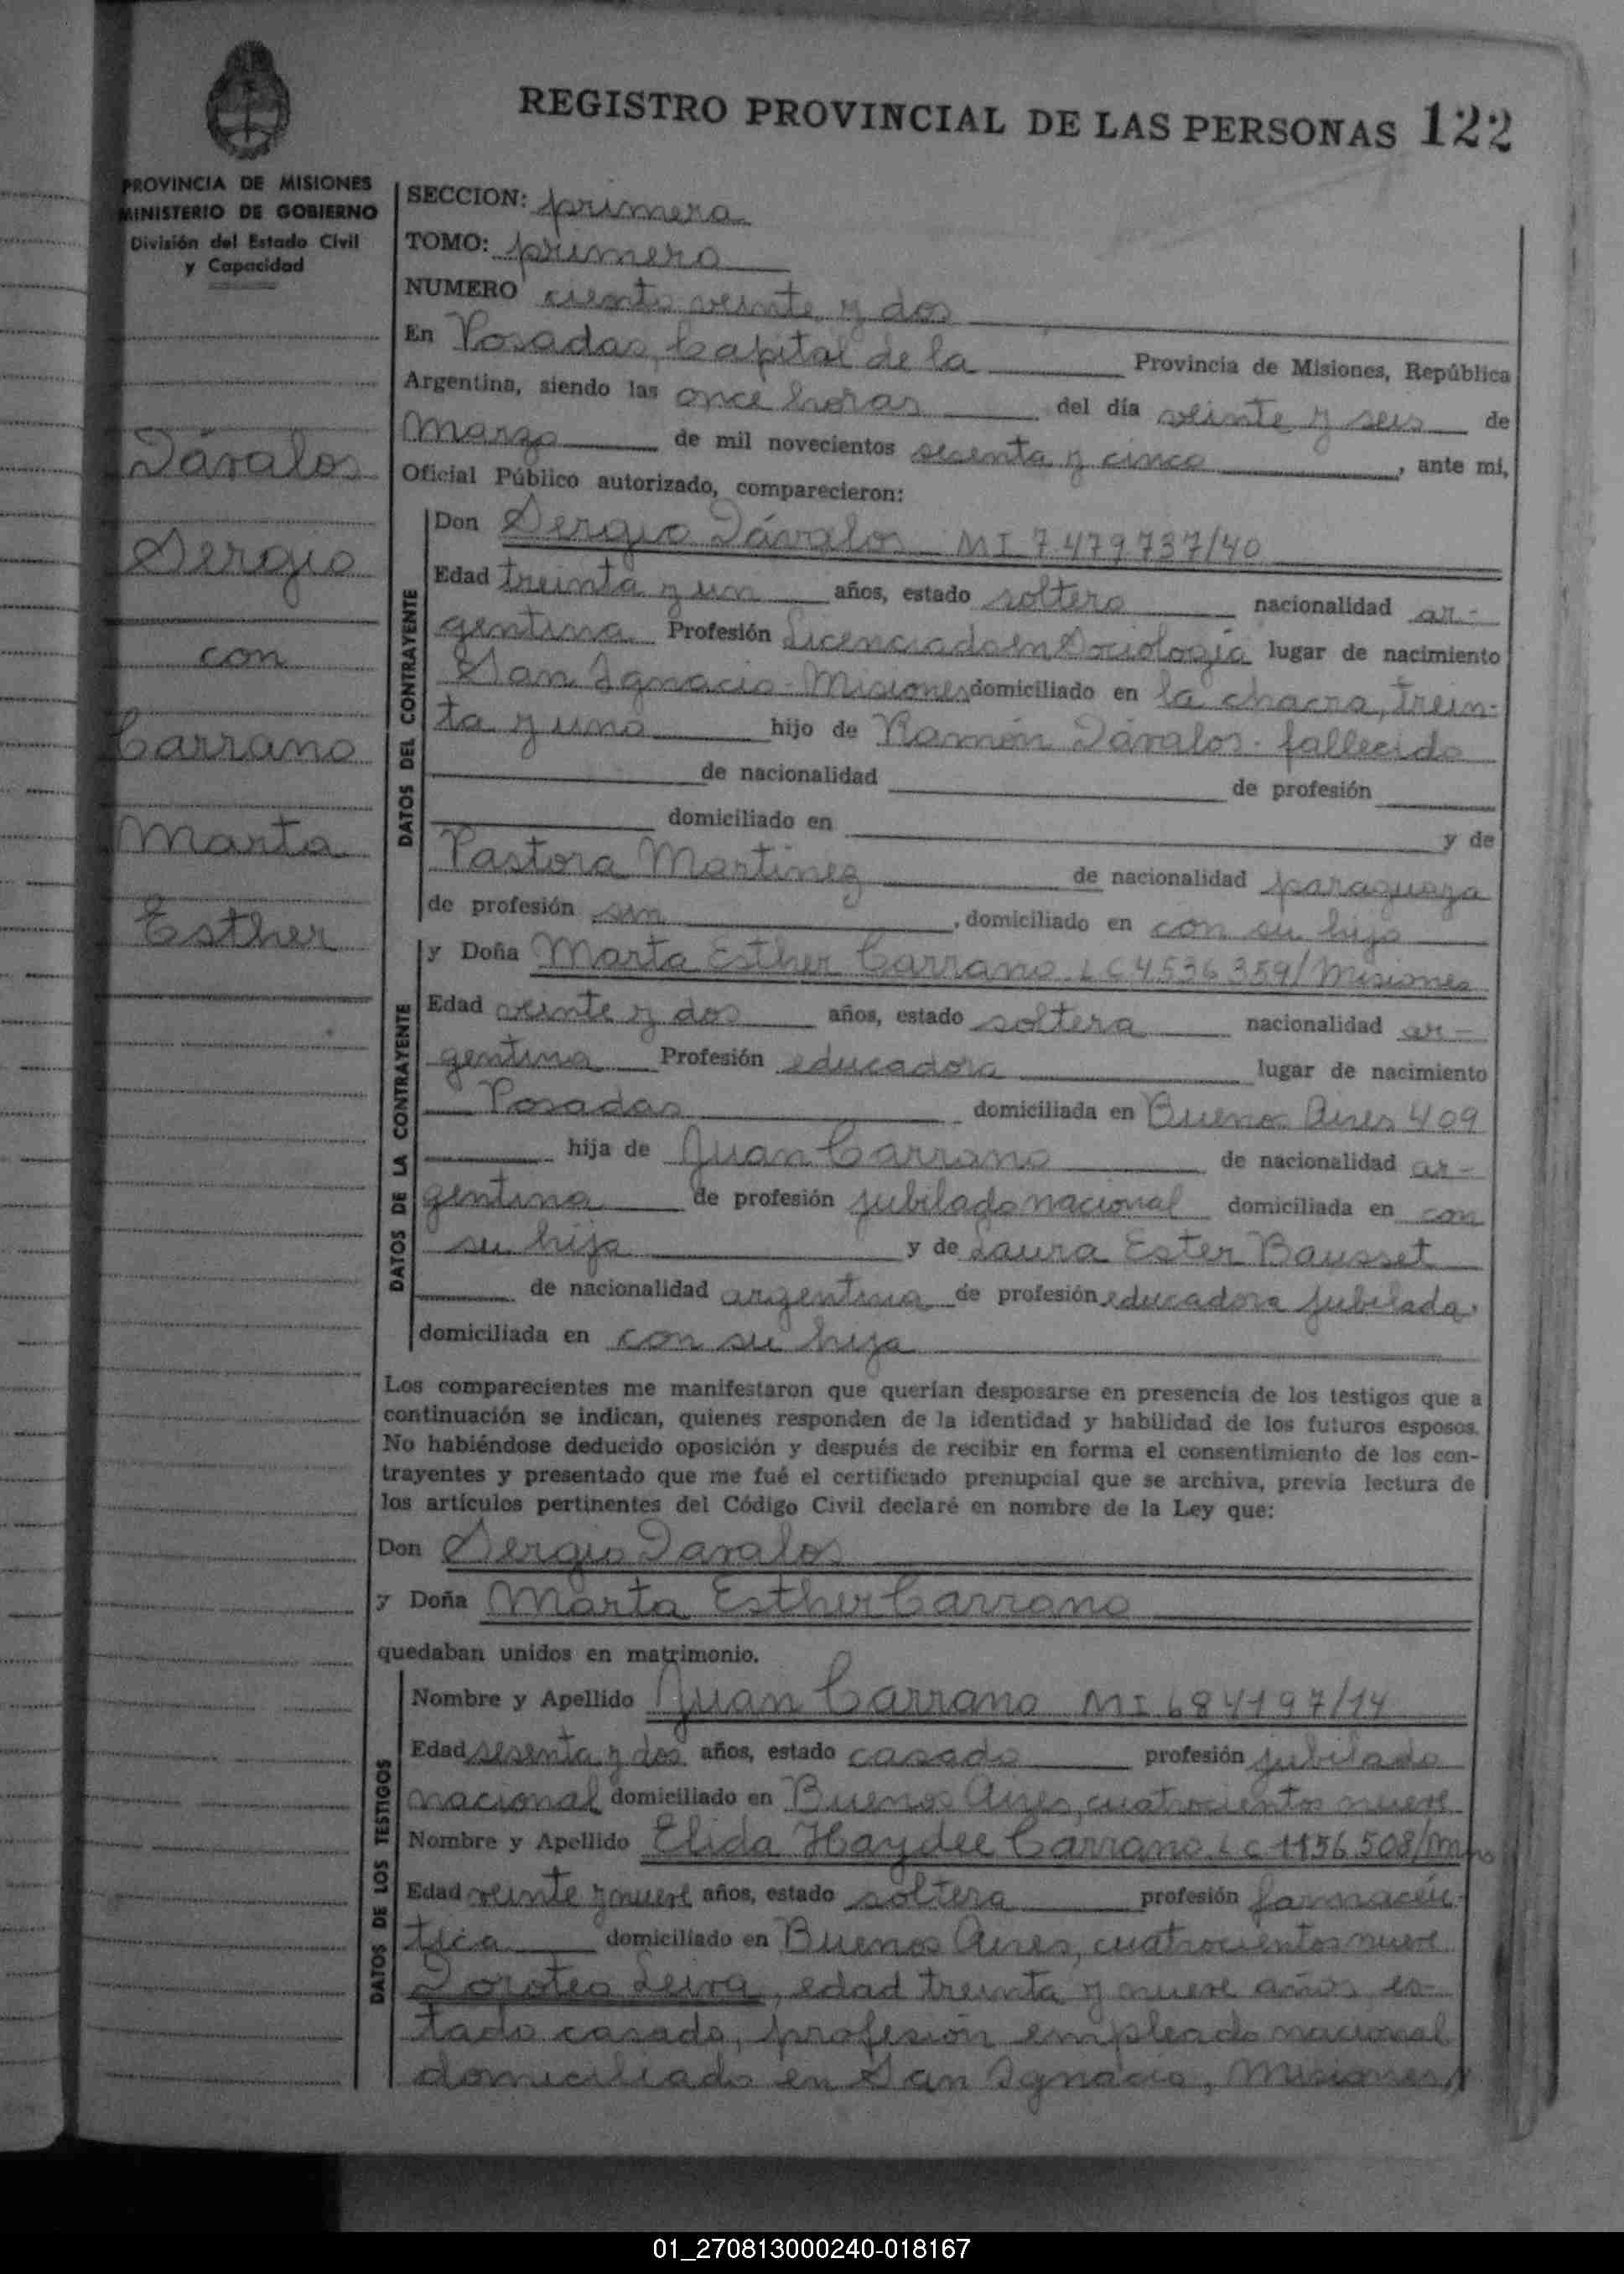 REGISTRO PROVINCIAL DE LAS PERSONAS 122
PROVINCIA DE MISIONES
MINISTERIO DE GOBIERNO
División del Estado Civil
y Capacidad
Dávalos
Sergio
con
Carrano
Marta
Esther
SECCION: primera
TOMO: primero
NUMERO ciento veinte y dos
En Posadas, Capital de la Provincia de Misiones, República
Argentina, siendo las once horas del día veinte y seis de
Marzo de mil novecientos sesenta y cinco, ante mi,
Oficial Público autorizado, comparecieron:
DATOS DEL CONTRAYENTE
Don Sergio Dávalos MI 7479737/40
Edad treinta y un años, estado soltero nacionalidad ar-
gentina Profesión Licenciado en Sociología lugar de nacimiento
San Ignacio-Misiones domiciliado en la chacra, trein-
ta y uno hijo de Ramón Dávalos - fallecido
de nacionalidad de profesión
domiciliado en y de
Pastora Martinez de nacionalidad paraguaya
de profesión sin, domiciliado en con su hijo
DATOS DE LA CONTRAYENTE
y Doña Marta Esther Carrano LC 4536359/Misiones
Edad veinte y dos años, estado soltera nacionalidad ar-
gentina Profesión educadora lugar de nacimiento
Posadas domiciliada en Buenos Aires 409
hija de Juan Carrano de nacionalidad ar-
gentina de profesión jubilado nacional domiciliada en con
su hija y de Laura Ester Bausset
de nacionalidad argentina de profesión educadora jubilada,
domiciliada en con su hija
Los comparecientes me manifestaron que querían desposarse en presencia de los testigos que a
continuación se indican, quienes responden de la identidad y habilidad de los futuros esposos.
No habiéndose deducido oposición y después de recibir en forma el consentimiento de los con-
trayentes y presentado que me fué el certificado prenupcial que se archiva, previa lectura de
los artículos pertinentes del Código Civil declaré en nombre de la Ley que:
Don Sergio Davalos
y Doña Marta Esther Carrano
quedaban unidos en matrimonio.
DATOS DE LOS TESTIGOS
Nombre y Apellido Juan Carrano MI 684197/14
Edad sesenta y dos años, estado casado profesión jubilado
nacional domiciliado en Buenos Aires, cuatrocientos nueve
Nombre y Apellido Elida Haydee Carrano LC 1156508/Mnes
Edad veinte y nueve años, estado soltera profesión farmacéu-
tica domiciliado en Buenos Aires, cuatrocientos nueve
Doroteo Leiva, edad treinta y nueve años, es-
tado casado, profesión empleado nacional
domiciliado en San Ignacio, Misiones
01_270813000240-018167